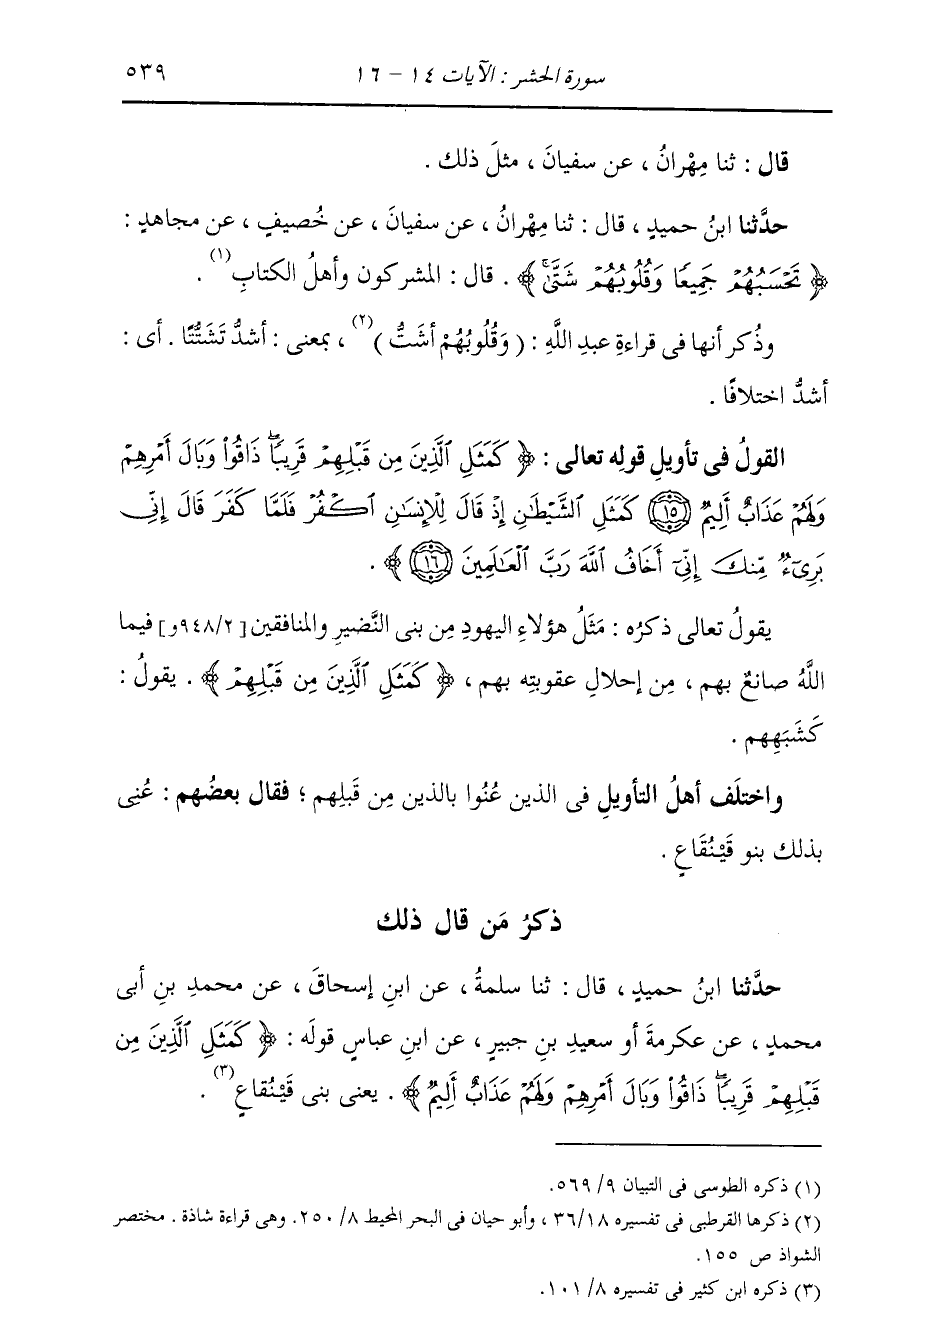 سورة الحشر : الآيات ١٤ - ١٦ ٥٣٩
قال : ثنا مِهْرانُ ، عن سفيانَ ، مثلَ ذلك .
حدَّثنا ابنُ حميدٍ ، قال : ثنا مِهْرانُ ، عن سفيانَ ، عن خُصيفٍ ، عن مجاهدٍ :
﴿ تَحْسَبُهُمْ جَمِيعًا وَقُلُوبُهُمْ شَتَّىٰ ﴾ . قال : المشركون وأهلُ الكتابِ(١) .
وذُكر أنها فى قراءةِ عبدِ اللَّهِ : ( وَقُلُوبُهُمْ أشَتُّ )(٢) ، بمعنى : أشدُّ تَشَتُّتًا . أى :
أشدُّ اختلافًا .
القولُ فى تأويلِ قولِه تعالى : ﴿ كَمَثَلِ ٱلَّذِينَ مِن قَبْلِهِمْ قَرِيبًاۖ ذَاقُوا۟ وَبَالَ أَمْرِهِمْ
وَلَهُمْ عَذَابٌ أَلِيمٌ ١٥ كَمَثَلِ ٱلشَّيْطَٰنِ إِذْ قَالَ لِلْإِنسَٰنِ ٱكْفُرْ فَلَمَّا كَفَرَ قَالَ إِنِّى
بَرِىٓءٌ مِّنكَ إِنِّىٓ أَخَافُ ٱللَّهَ رَبَّ ٱلْعَٰلَمِينَ ١٦ ﴾ .
يقولُ تعالى ذكرُه : مَثَلُ هؤلاءِ اليهودِ مِن بنى النَّضيرِ والمنافقين [٩٤٨/٢و] فيما
اللَّهُ صانعٌ بهم ، مِن إحلالِ عقوبتِه بهم ، ﴿ كَمَثَلِ ٱلَّذِينَ مِن قَبْلِهِمْ ﴾ . يقولُ :
كَشَبَهِهم .
واختلَف أهلُ التأويلِ فى الذين عُنُوا بالذين مِن قَبلِهم ؛ فقال بعضُهم : عُنِى
بذلك بنو قَيْنُقَاعٍ .
ذكرُ مَن قال ذلك
حدَّثنا ابنُ حميدٍ ، قال : ثنا سلمةُ ، عن ابنِ إسحاقَ ، عن محمدِ بنِ أبى
محمدٍ ، عن عكرمةَ أو سعيدِ بنِ جبيرٍ ، عن ابنِ عباسٍ قولَه : ﴿ كَمَثَلِ ٱلَّذِينَ مِن
قَبْلِهِمْ قَرِيبًاۖ ذَاقُوا۟ وَبَالَ أَمْرِهِمْ وَلَهُمْ عَذَابٌ أَلِيمٌ ﴾ . يعنى بنى قَيْنُقاعٍ(٣) .
(١) ذكره الطوسى فى التبيان ٩/ ٥٦٩.
(٢) ذكرها القرطبى فى تفسيره ٣٦/١٨ ، وأبو حيان فى البحر المحيط ٨/ ٢٥٠. وهى قراءة شاذة . مختصر
الشواذ ص ١٥٥.
(٣) ذكره ابن كثير فى تفسيره ٨/ ١٠١.